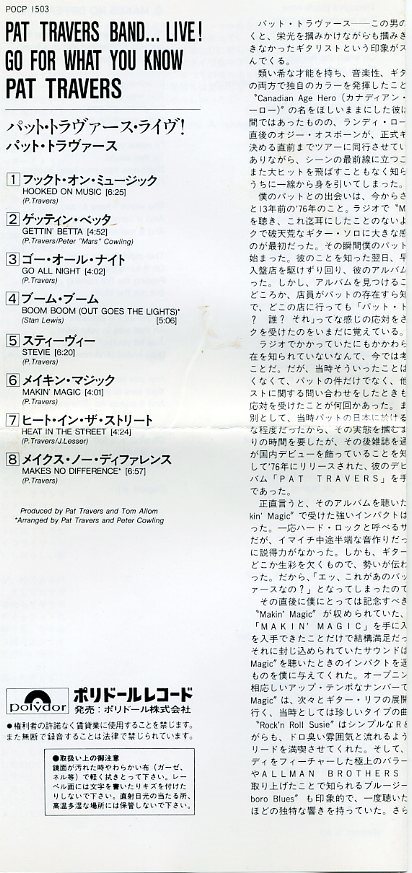 POCP 1503
PAT TRAVERS BAND... LIVE!
GO FOR WHAT YOU KNOW
PAT TRAVERS
パット・トラヴァース・ライヴ!
パット・トラヴァース
1 フックト・オン・ミュージック
HOOKED ON MUSIC [6:25]
(P.Travers)
2 ゲッティン・ベッタ
GETTIN' BETTA [4:52]
(P.Travers/Peter "Mars" Cowling)
3 ゴー・オール・ナイト
GO ALL NIGHT [4:02]
(P.Travers)
4 ブーム・ブーム
BOOM BOOM (OUT GOES THE LIGHTS)*
(Stan Lewis) [5:06]
5 スティーヴィー
STEVIE [6:20]
(P.Travers)
6 メイキン・マジック
MAKIN' MAGIC [4:01]
(P.Travers)
7 ヒート・イン・ザ・ストリート
HEAT IN THE STREET [4:24]
(P.Travers/J.Lesser)
8 メイクス・ノー・ディファレンス
MAKES NO DIFFERENCE* [6:57]
(P.Travers)
Produced by Pat Travers and Tom Allom
*Arranged by Pat Travers and Peter Cowling
polydor
ポリドールレコード
発売:ポリドール株式会社
●権利者の許諾なく賃貸業に使用することを禁じます。
また無断で録音することは法律で禁じられています。
●取扱い上の御注意
鏡面が汚れた時やわらかい布(ガーゼ、
ネル等)で軽く拭きとって下さい。レー
ベル面には文字を書いたりキズを付けた
りしないで下さい。直射日光の当たる所、
高温多湿な場所には保管しないで下さい。
パット・トラヴァース——この男の
くと、栄光を掴みかけながらも掴みき
きなかったギタリストという印象がス
んでくる。
類い希な才能を持ち、音楽性、ギタ
の両方で独自のカラーを発揮したこと
"Canadian Age Hero (カナディアン・
ーロー)"の名をほしいままにした彼に
間ではあったものの、ランディ・ロー
直後のオジー・オスボーンが、正式ギ
決める直前までツアーに同行させてい
ありながら、シーンの最前線に立つこ
また大ヒットを飛ばすこともなく知ら
うちに一線から身を引いてしまった。
僕のパットとの出会いは、今からさ
と13年前の'76年のこと。ラジオで"M
を聴き、これ迄耳にしたことのないよ
クで破天荒なギター・ソロに大きな感
のが最初だった。その瞬間僕のパット
始まった。彼のことを知った翌日、早
入盤店を駆けずり回り、彼のアルバム
った。しかし、アルバムを見つけるこ
どころか、店員がパットの存在すら知
で、どこの店に行っても「パット・ト
? 誰? それ」ってな感じの応対をさ
クを受けたのをいまだに覚えている。
ラジオでかかっていたにもかかわら
在を知られていないなんて、今では考
ことだ。だが、当時そういったことは
くなくて、パットの件だけでなく、他
ストに関する問い合わせをしたときも
応対を受けたことが何回かあった。ま
別として、当時パットの日本に於ける
な程度だったから、その実態を掴むま
りの時間を要したが、その後雑誌で過
が国内デビューを飾っていることを知
して'76年にリリースされた、彼のデビ
バム「PAT TRAVERS」を手
であった。
正直言うと、そのアルバムを聴いた
kin' Magic"で受けた強いインパクトは
った。一応ハード・ロックと呼べるサ
だが、イマイチ中途半端な音作りだっ
に説得力がなかった。しかも、ギター
どこか生彩を欠くもので、勢いが伝わ
った。だから、「エッ、これがあのパッ
ァースなの?」となってしまったので
その直後に僕にとっては記念すべき
"Makin' Magic"が収められていた、
「MAKIN' MAGIC」を手に入
を入手できたことだけで結構満足だっ
それに封じ込められていたサウンドは
Magic"を聴いたときのインパクトを遥
ものを僕に与えてくれた。オープニン
相応しいアップ・テンポなナンバーで
Magic"は、次々とギター・リフの展開
行く、当時としては珍しいタイプの曲
"Rock'n Roll Susie"はシンプルなR&
がらも、ドロ臭い雰囲気と流れるよう
リードを満喫させてくれた。そして、
ディをフィーチャーした極上のバラー
やALLMAN BROTHERS
取り上げたことで知られるブルージー
boro Blues"も印象的で、一度聴いた
ほどの独特な響きを持っていた。さら